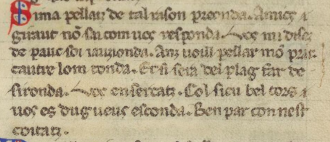 Si ma pellatz de tal raison preonda. Amics
girautz nō sai com uos responda. uos mi disetz
de pauc soi iauionda. Anz uoill pellar mō prat
cautre lom tonda. Er si feia del plag far de
sironda. uos ensercatz. Col sieu bel cors a
uos es dugz uenc esconda. Ben par con nest
coitatz.